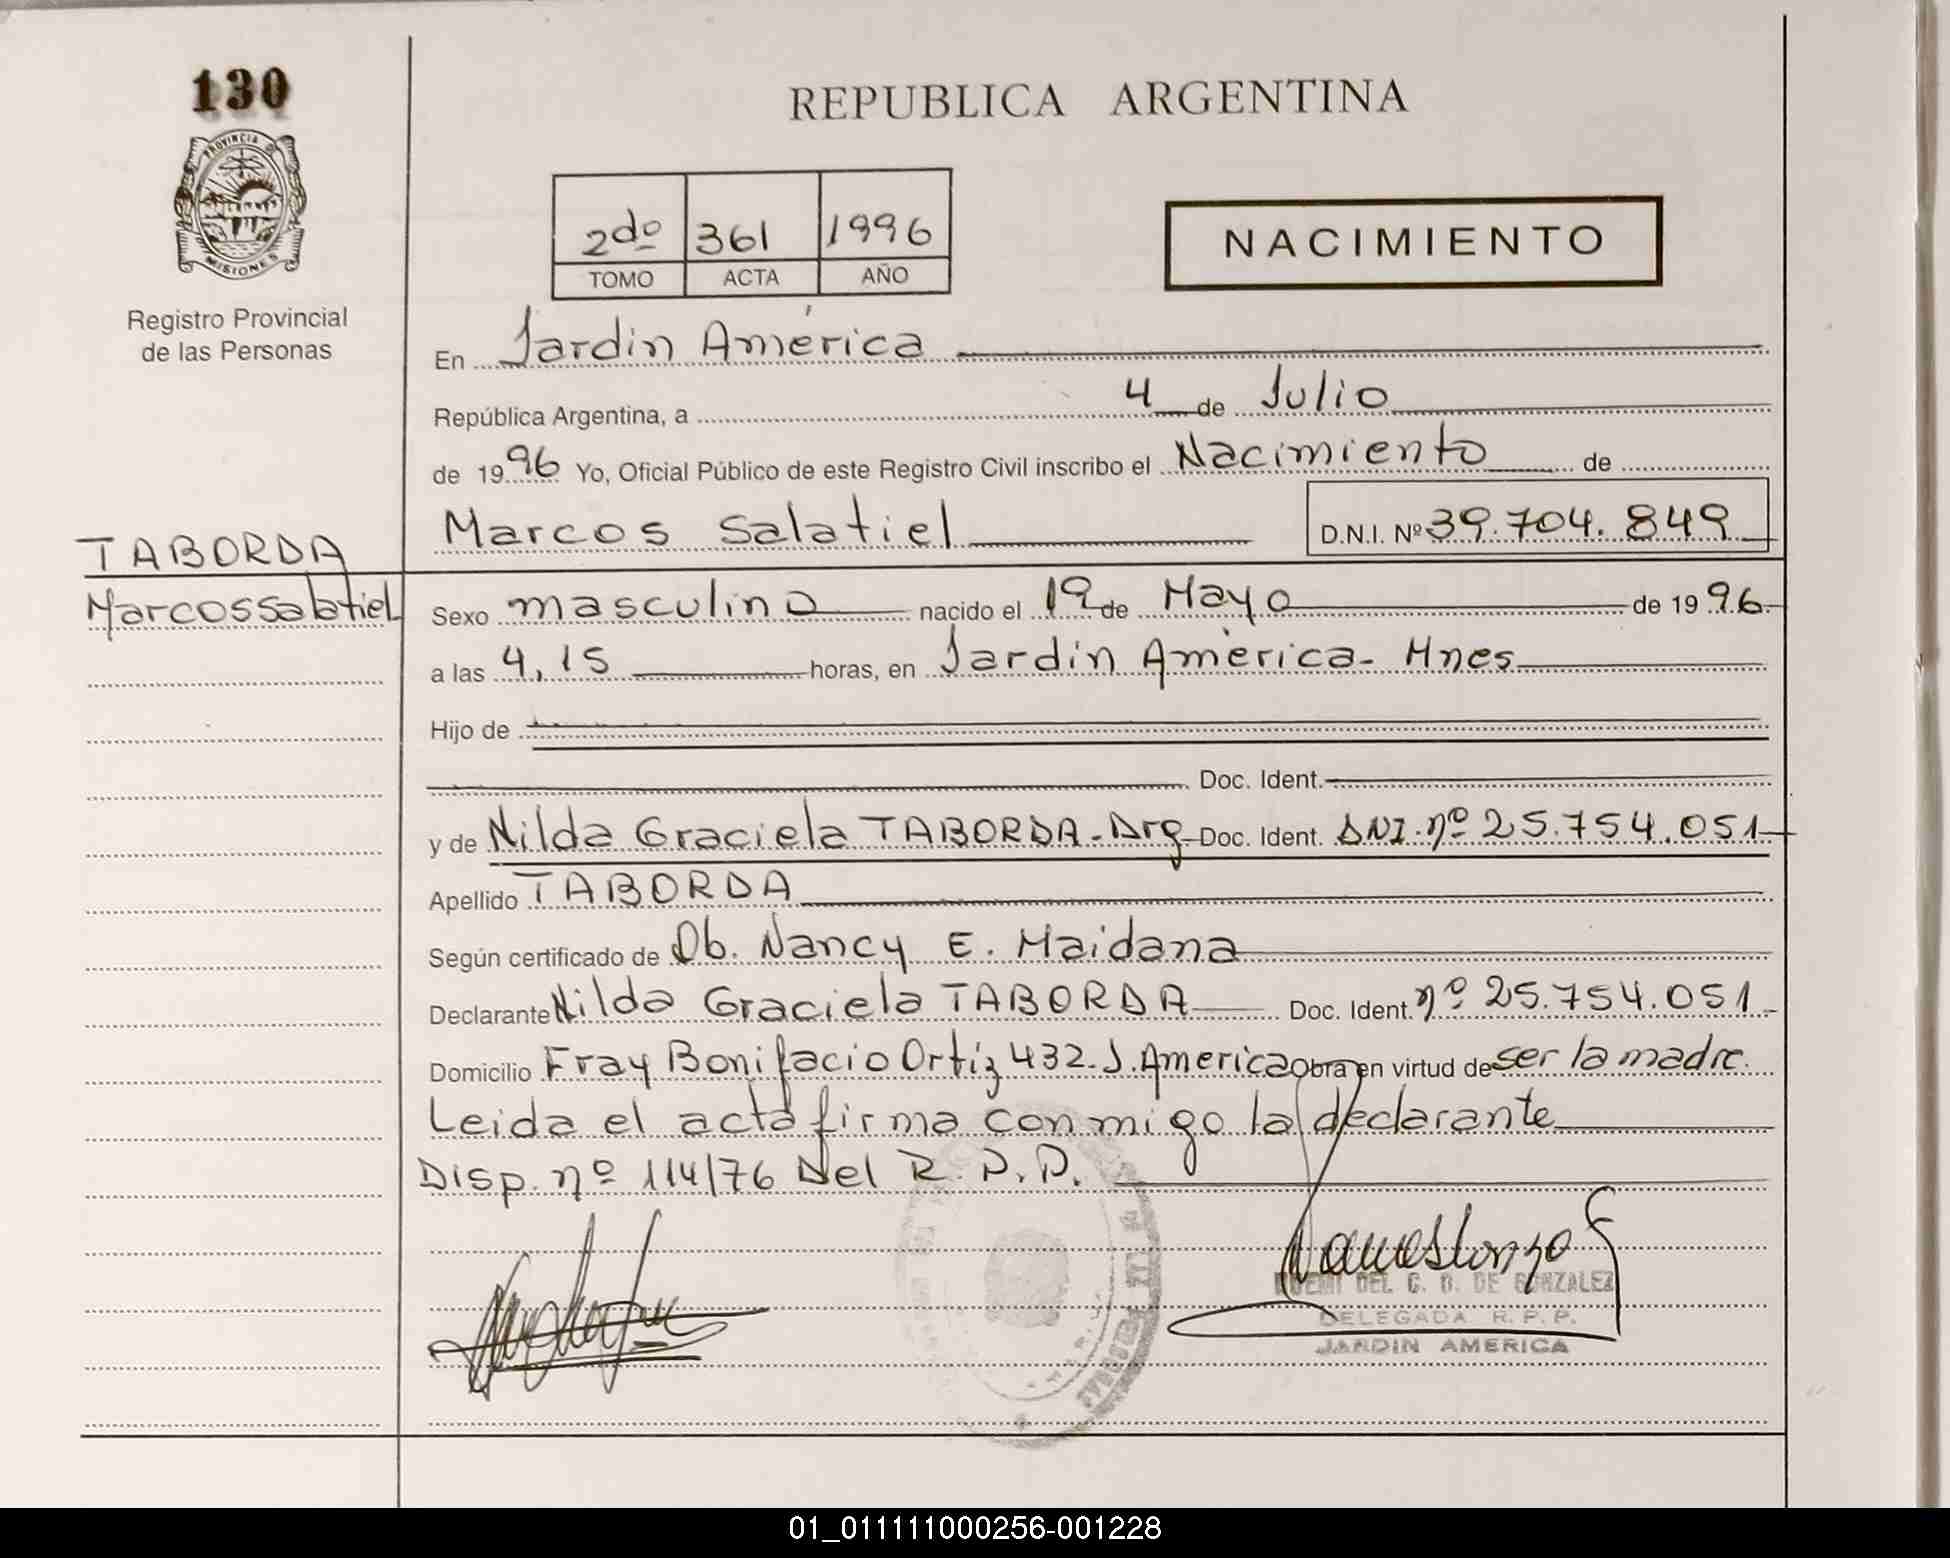 130
REPUBLICA ARGENTINA
PROVINCIA DE
MISIONES
Registro Provincial
de las Personas
2do 361 1996
TOMO ACTA AÑO
NACIMIENTO
En Jardín América
República Argentina, a 4 de Julio
de 1996 Yo, Oficial Público de este Registro Civil inscribo el Nacimiento de
Marcos Salatiel D.N.I. Nº 39.704.849
TABORDA
Marcos Salatiel
Sexo masculino nacido el 19 de Mayo de 1996
a las 4,15 horas, en Jardín América - Mnes
Hijo de
Doc. Ident.
y de Nilda Graciela TABORDA - Arg Doc. Ident. DNI. nº 25.754.051
Apellido TABORDA
Según certificado de Ob. Nancy E. Maidana
Declarante Nilda Graciela TABORDA Doc. Ident. nº 25.754.051
Domicilio Fray Bonifacio Ortiz 432. J. America Obra en virtud de ser la madre.
Leida el acta firma conmigo la declarante
Disp. nº 114/76 Del R. P. P.
DEL C. B. DE GONZALEZ
DELEGADA R. P. P.
JARDIN AMERICA
01_011111000256-001228